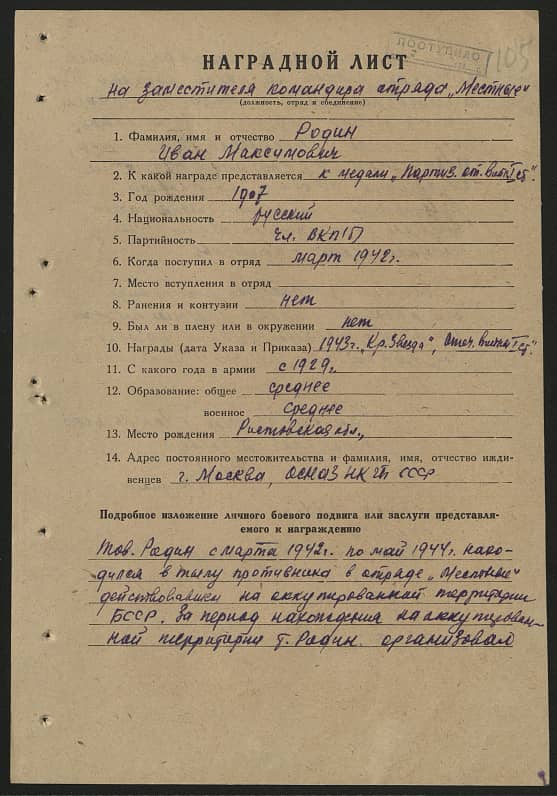 ПОСТУПИЛО
1105
НАГРАДНОЙ ЛИСТ
на заместителя командира отряда „Местные"
(должность, отряд и соединение)
1. Фамилия, имя и отчество Родин
Иван Максимович
2. К какой награде представляется к медали „Партиз. от. войны I ст."
3. Год рождения 1907
4. Национальность русский
5. Партийность чл. ВКП(б)
6. Когда поступил в отряд март 1942 г.
7. Место вступления в отряд
8. Ранения и контузии нет
9. Был ли в плену или в окружении нет
10. Награды (дата Указа и Приказа) 1943 г. „Кр. Звезда", Отеч. войны I ст."
11. С какого года в армии с 1929 г.
12. Образование: общее среднее
военное среднее
13. Место рождения Ростовская обл.,
14. Адрес постоянного местожительства и фамилия, имя, отчество ижди-
венцев г. Москва, ОСНАЗ НКГБ СССР
Подробное изложение личного боевого подвига или заслуги представляе-
мого к награждению
Тов. Родин с марта 1942 г. по май 1944 г. нахо-
дился в тылу противника в отряде „Местные"
действовавшем на оккупированной территории
БССР. За период нахождения на оккупирован-
ной территории т. Родин. организовал